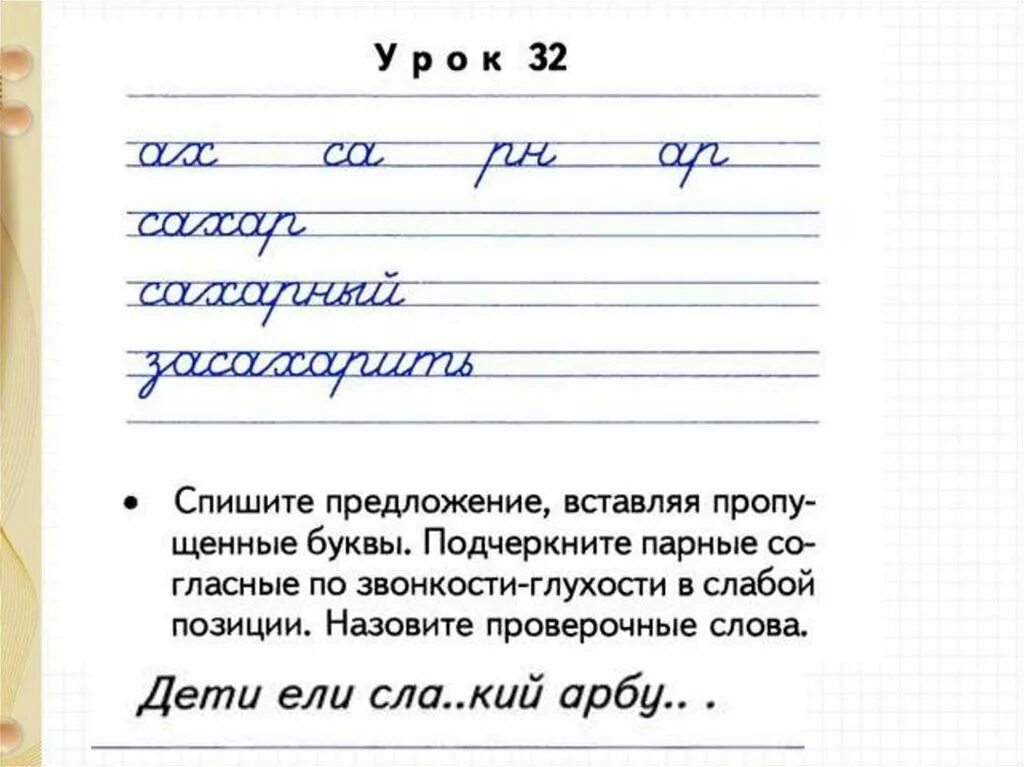 Урок 32
ах са рн ар
сахар
сахарный
засахарить
• Спишите предложение, вставляя пропу-
щенные буквы. Подчеркните парные со-
гласные по звонкости-глухости в слабой
позиции. Назовите проверочные слова.
Дети ели сла..кий арбу.. .